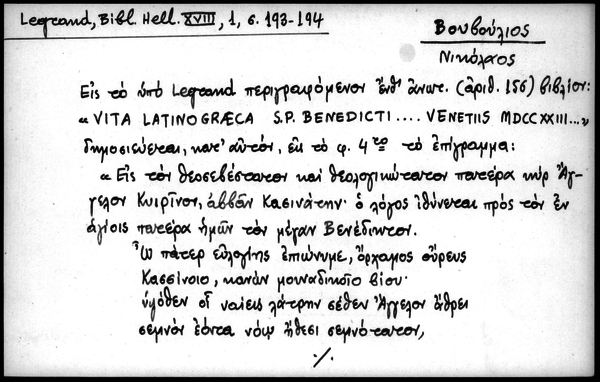 Legrand, Bibl. Hell. XVIII, 1, σ. 193-194
Βουβούλιος
Νικόλαος
Εἰς τὸ ὑπὸ Legrand περιγραφόμενον ἔνθ' ἀνωτ. (ἀριθ. 156) βιβλίον:
« VITA LATINOGRÆCA S.P. BENEDICTI .... VENETIIS MDCCXXIII ...»
δημοσιεύεται, κατ' αὐτόν, εἰς τὸ φ. 4ʳᵒ τὸ ἐπίγραμμα:
« Εἰς τὸν θεοσεβέστατον καὶ θεολογικώτατον πατέρα κὺρ Ἄγ-
γελον Κυιρῖνον, ἀββᾶν Κασινάτην· ὁ λόγος ἰθύνεται πρὸς τὸν ἐν
ἁγίοις πατέρα ἡμῶν τὸν μέγαν Βενέδικτον.
Ὦ πάτερ εὐλογίης ἐπώνυμε, ὄρχαμος οὔρευς
Κασσίνοιο, κανὼν μοναδικοῖο βίου·
ὑψόθεν οἷ ναίεις λάτρην σέθεν Ἄγγελον ἄθρει
σεμνὸν ἐόντα νόῳ ἤθεσι σεμνότατον,
·/.